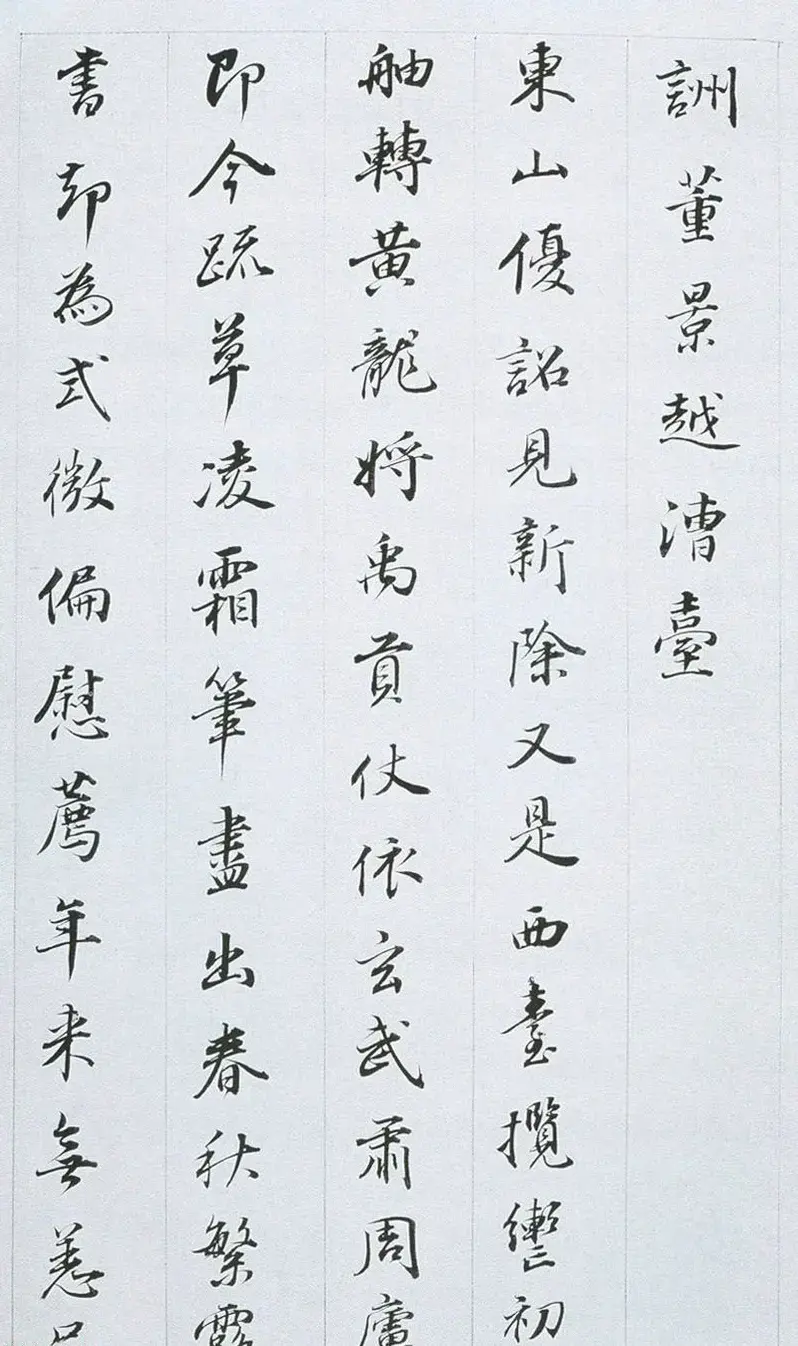 詶董景越漕臺
東山優詔見新除又是西臺攬轡初
舳轉黃龍將禹貢仗依玄武肅周廬
即今疏草凌霜筆盡出春秋繁露
書却為式微偏慰薦年来無恙